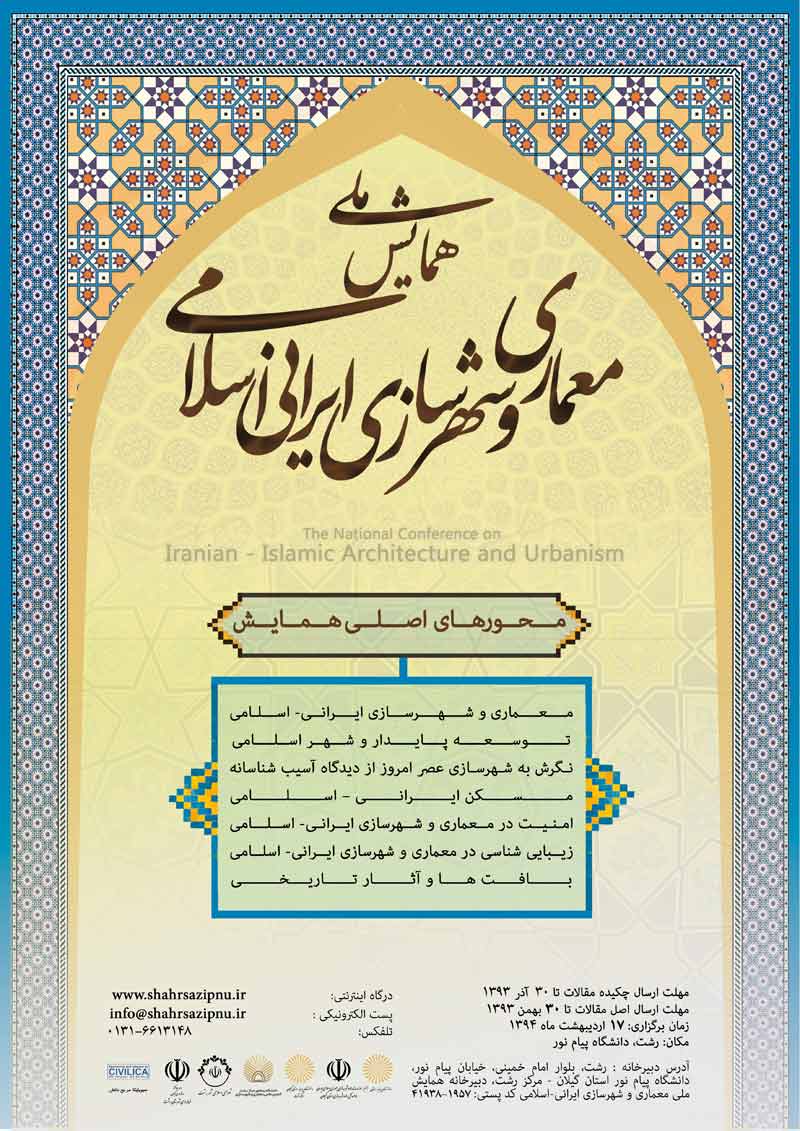 همایش ملی
معماری و شهرسازی ایرانی اسلامی
The National Conference on
Iranian - Islamic Architecture and Urbanism
محورهای اصلی همایش
معماری و شهرسازی ایرانی- اسلامی
توسعه پایدار و شهر اسلامی
نگرش به شهرسازی عصر امروز از دیدگاه آسیب شناسانه
مسکن ایرانی - اسلامی
امنیت در معماری و شهرسازی ایرانی- اسلامی
زیبایی شناسی در معماری و شهرسازی ایرانی- اسلامی
بافت ها و آثار تاریخی
مهلت ارسال چکیده مقالات تا ۳۰ آذر ۱۳۹۳
مهلت ارسال اصل مقالات تا ۳۰ بهمن ۱۳۹۳
زمان برگزاری: ۱۷ اردیبهشت ماه ۱۳۹۴
مکان: رشت، دانشگاه پیام نور
درگاه اینترنتی: www.shahrsazipnu.ir
پست الکترونیکی : info@shahrsazipnu.ir
تلفکس: ۰۱۳۱-۶۶۱۳۱۴۸
آدرس دبیرخانه : رشت، بلوار امام خمینی، خیابان پیام نور،
دانشگاه پیام نور استان گیلان - مرکز رشت، دبیرخانه همایش
ملی معماری و شهرسازی ایرانی-اسلامی کد پستی: ۱۹۵۷-۴۱۹۳۸
CIVILICA